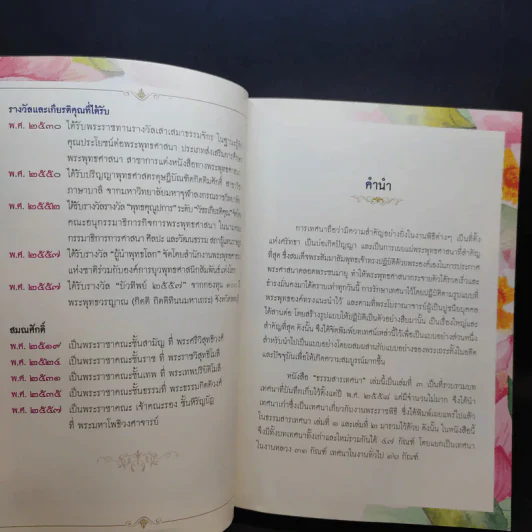 รางวัลและเกียรติคุณที่ได้รับ
พ.ศ. ๒๕๓๐ ได้รับพระราชทานรางวัลเสาเสมาธรรมจักร ในฐานะผู้
คุณประโยชน์ต่อพระพุทธศาสนา ประเภทส่งเสริมการศึกษา
พระพุทธศาสนา สาขาการแต่งหนังสือทางพระพุทธศาสนา
พ.ศ. ๒๕๕๐ ได้รับปริญญาพุทธศาสตรดุษฎีบัณฑิตกิตติมศักดิ์ สาขาวิชา
ภาษาบาลี จากมหาวิทยาลัยมหาจุฬาลงกรณราชวิทยาลัย
พ.ศ. ๒๕๕๒ ได้รับรางวัล "พุทธคุณูปการ" ระดับ
คณะอนุกรรมาธิการกิจการพระพุทธศาสนา ในนาม
กรรมาธิการการศาสนา ศิลปะ และวัฒนธรรม สภาผู้แทน
พ.ศ. ๒๕๕๗ ได้รับรางวัล "ผู้นำพุทธโลก" จัดโดยสำนักงานพระพุทธ
แห่งชาติร่วมกับองค์การยุวพุทธศาสนิกสัมพันธ์แห่งโลก
พ.ศ. ๒๕๕๗ ได้รับรางวัล จากกองทุน
พระพุทธวรญาณ (กิตติ กิตฺติทินฺนมหาเถระ) จังหวัด
สมณศักดิ์
พ.ศ. ๒๕๑๗ เป็นพระราชาคณะชั้นสามัญ ที่ พระศรีวิสุทธิวงศ์
พ.ศ. ๒๕๒๔ เป็นพระราชาคณะชั้นราช ที่ พระราชวิสุทธิโมลี
พ.ศ. ๒๕๓๑ เป็นพระราชาคณะชั้นเทพ ที่ พระเทพปริยัติโมลี
พ.ศ. ๒๕๓๕ เป็นพระราชาคณะชั้นธรรม ที่ พระธรรมกิตติวงศ์
พ.ศ. ๒๕๕๗ เป็นพระราชาคณะ เจ้าคณะรอง ชั้นหิรัญบัฏ
ที่ พระมหาโพธิวงศาจารย์
คำนำ
การเทศนาถือว่ามีความสำคัญอย่างยิ่งในงานพิธีต่างๆ เป็นที่ตั้ง
แห่งศรัทธา เป็นบ่อเกิดปัญญา และเป็นการเผยแผ่พระพุทธศาสนาที่สำคัญ
ที่สุด ซึ่งสมเด็จพระสัมมาสัมพุทธเจ้าทรงปฏิบัติด้วยพระองค์เองในการประกาศ
พระศาสนาตลอดพระชนมายุ ทำให้พระพุทธศาสนากระจายตัวได้รวดเร็วและ
ยั่งยืนคงมาได้ตราบเท่าทุกวันนี้ การรักษาเทศนาไว้โดยปฏิบัติตามรูปแบบที่
พระพุทธองค์ทรงแนะนำไว้ และตามที่พระโบราณาจารย์ผู้เป็นปูชนียบุคคล
ได้สานต่อ โดยสร้างรูปแบบให้ปฏิบัติเป็นตัวอย่างสืบมานั้น เป็นเรื่องใหญ่และ
สำคัญที่สุด ดังนั้น จึงได้จัดพิมพ์บทเทศน์เหล่านี้ไว้เพื่อเป็นแบบอย่างส่วนหนึ่ง
สำหรับนำไปเป็นแบบอย่างโดยผสมผสานกับแบบอย่างของพระเถระทั้งในอดีต
และปัจจุบันเพื่อให้เกิดความสมบูรณ์มากขึ้น
หนังสือ "ธรรมสารเทศนา" เล่มนี้เป็นเล่มที่ ๓ เป็นที่รวบรวมบท
เทศนาที่บันทึกเก็บไว้ตั้งแต่ปี พ.ศ. ๒๕๕๘ แต่มีจำนวนไม่มาก จึงได้นำ
เทศนาเก่าซึ่งเป็นเทศนาเกี่ยวกับงานพระราชพิธี ซึ่งได้พิมพ์เผยแพร่ไปแล้ว
ในธรรมสารเทศนา เล่มที่ ๑ และเล่มที่ ๒ มารวมไว้ด้วย ดังนั้น ในหนังสือนี้
จึงมีทั้งบทเทศนาทั้งเก่าและใหม่รวมกันได้ ๔๗ กัณฑ์ โดยแยกเป็นเทศนา
ในงานหลวง ๓๑ กัณฑ์ เทศนาในงานทั่วไป ๑๖ กัณฑ์